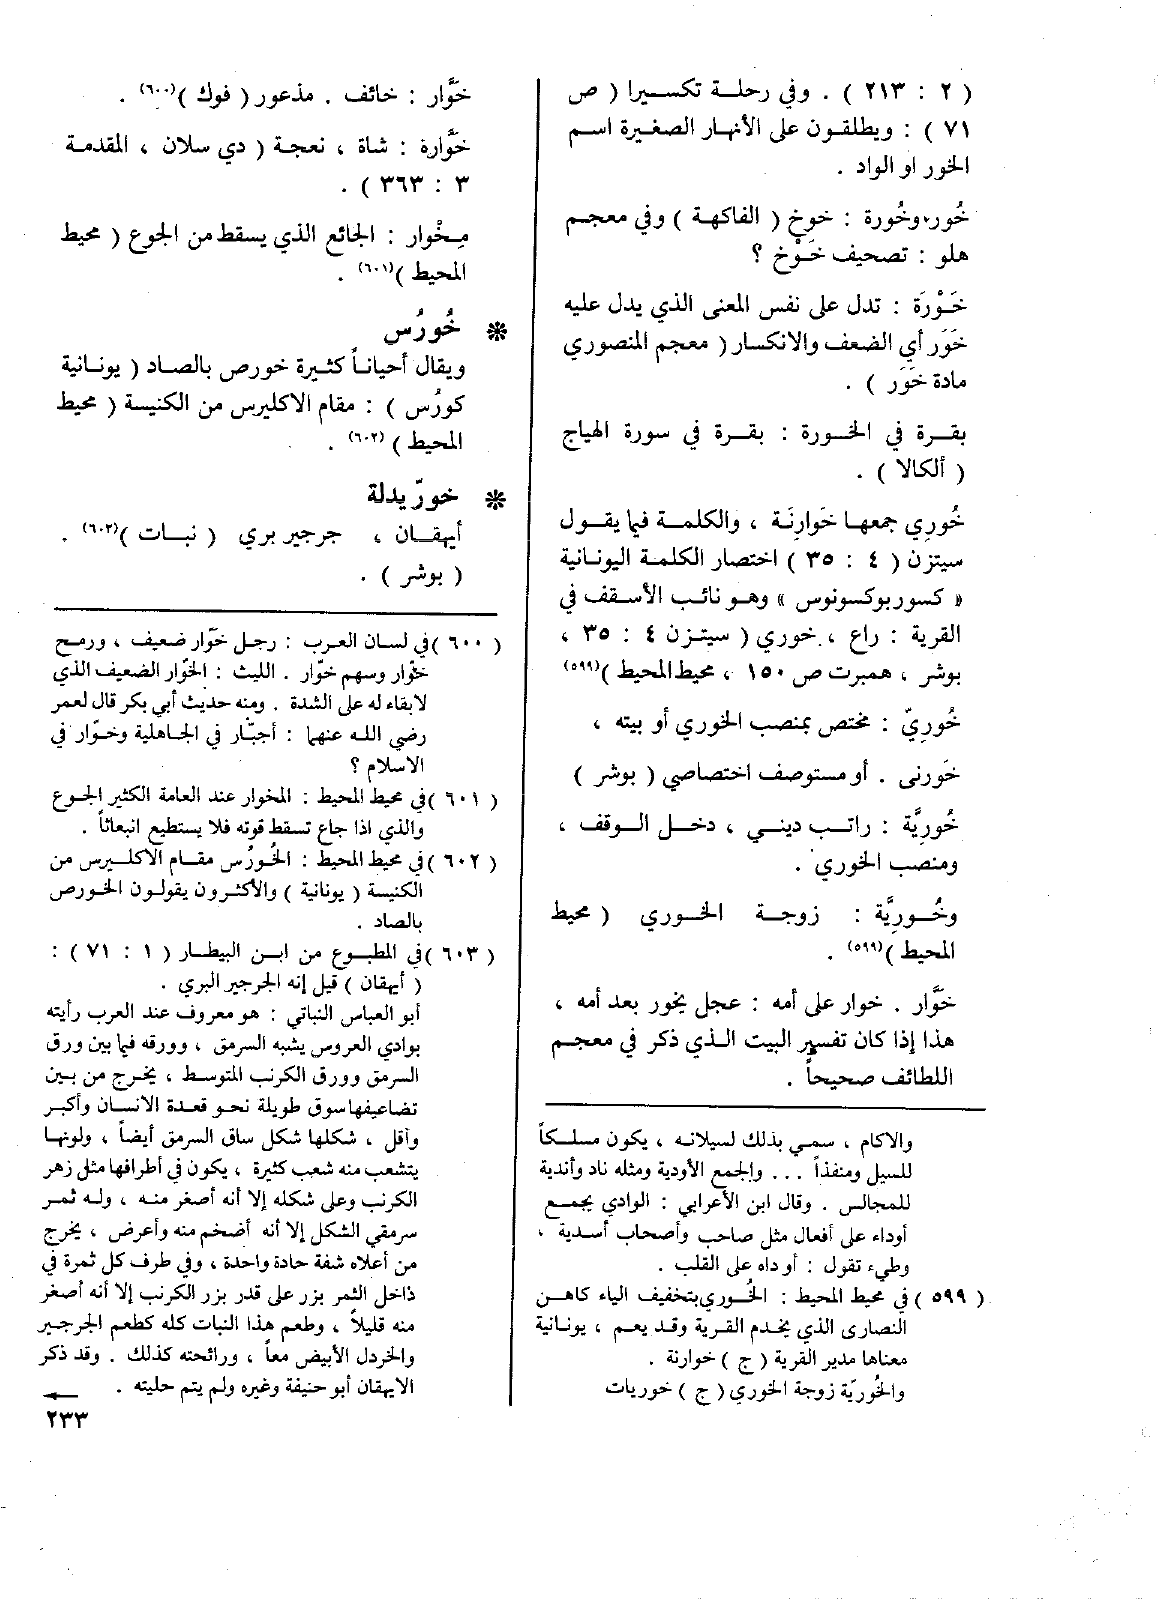 ( ٢ : ٢١٣ ) . وفي رحلة تكسيرا ( ص
٧١ ) : ويطلقون على الأنهار الصغيرة اسم
الخور او الواد .
خُور، وخُورة : خوخ ( الفاكهة ) وفي معجم
هلو : تصحيف خَوْخ ؟
خَوْرَة : تدل على نفس المعنى الذي يدل عليه
خَوَر أي الضعف والانكسار ( معجم المنصوري
مادة خَوَر ) .
بقرة في الخورة : بقرة في سورة الهياج
( ألكالا ) .
خُورِي جمعها خَوارِنَة ، والكلمة فيما يقول
سيتزن ( ٤ : ٣٥ ) اختصار الكلمة اليونانية
« كسوربوكسونوس » وهو نائب الأسقف في
القرية : راع ، خوري ( سيتزن ٤ : ٣٥ ،
بوشر ، همبرت ص ١٥٠ ، محيط المحيط )(٥٩٩)
خُورِيّ : مختص بمنصب الخوري أو بيته ،
خَورنى . أو مستوصف اختصاصي ( بوشر )
خُورِيَّة : راتب ديني ، دخل الوقف ،
ومنصب الخوري .
وخُورِيَّة : زوجة الخوري ( محيط
المحيط )(٥٩٩) .
خَوَّار . خوار على أمه : عجل يخور بعد أمه ،
هذا إذا كان تفسير البيت الذي ذكر في معجم
اللطائف صحيحاً .
والاكام ، سمي بذلك لسيلانه ، يكون مسلكاً
للسيل ومنفذاً ... والجمع الأودية ومثله ناد وأندية
للمجالس . وقال ابن الأعرابي : الوادي يجمع
أوداء على أفعال مثل صاحب وأصحاب أسدية ،
وطيء تقول : أوداه على القلب .
( ٥٩٩ ) في محيط المحيط : الخُوري بتخفيف الياء كاهن
النصارى الذي يخدم القرية وقد يعم ، يونانية
معناها مدير القرية ( ج ) خوارنة .
والخُوريّة زوجة الخوري ( ج ) خوريات
خَوَّار : خائف . مذعور ( فوك )(٦٠٠) .
خَوَّارة : شاة ، نعجة ( دي سلان ، المقدمة
٣ : ٣٦٣ ) .
مِخْوار : الجائع الذي يسقط من الجوع ( محيط
المحيط )(٦٠١) .
❋ خُورُس
ويقال أحياناً كثيرة خورص بالصاد ( يونانية
كورُس ) : مقام الاكليرس من الكنيسة ( محيط
المحيط )(٦٠٢) .
❋ خورّيدلة
أيهقان ، جرجير بري ( نبات )(٦٠٣) .
( بوشر ) .
( ٦٠٠ ) في لسان العرب : رجل خَوّار ضعيف ، ورمح
خوّار وسهم خوّار . الليث : الخوّار الضعيف الذي
لابقاء له على الشدة . ومنه حديث أبي بكر قال لعمر
رضي الله عنهما : أجبّار في الجاهلية وخوّار في
الاسلام ؟
( ٦٠١ ) في محيط المحيط : المخوار عند العامة الكثير الجوع
والذي اذا جاع تسقط قوته فلا يستطيع انبعاثاً .
( ٦٠٢ ) في محيط المحيط : الخُورُس مقام الاكليرس من
الكنيسة ( يونانية ) والأكثرون يقولون الخورص
بالصاد .
( ٦٠٣ ) في المطبوع من ابن البيطار ( ١ : ٧١ ) :
( أيهقان ) قيل إنه الجرجير البري .
أبو العباس النباتي : هو معروف عند العرب رأيته
بوادي العروس يشبه السرمق ، وورقه فيما بين ورق
السرمق وورق الكرنب المتوسط ، يخرج من بين
تضاعيفها سوق طويلة نحو قعدة الانسان وأكبر
وأقل ، شكلها شكل ساق السرمق أيضاً ، ولونها
يتشعب منه شعب كثيرة ، يكون في أطرافها مثل زهر
الكرنب وعلى شكله إلا أنه أصغر منه ، وله ثمر
سرمقي الشكل إلا أنه أضخم منه وأعرض ، يخرج
من أعلاه شفة حادة واحدة ، وفي طرف كل ثمرة في
داخل الثمر بزر على قدر بزر الكرنب إلا أنه أصغر
منه قليلاً ، وطعم هذا النبات كله كطعم الجرجير
والخردل الأبيض معاً ، ورائحته كذلك . وقد ذكر
الايهقان أبو حنيفة وغيره ولم يتم حليته .
٢٣٣